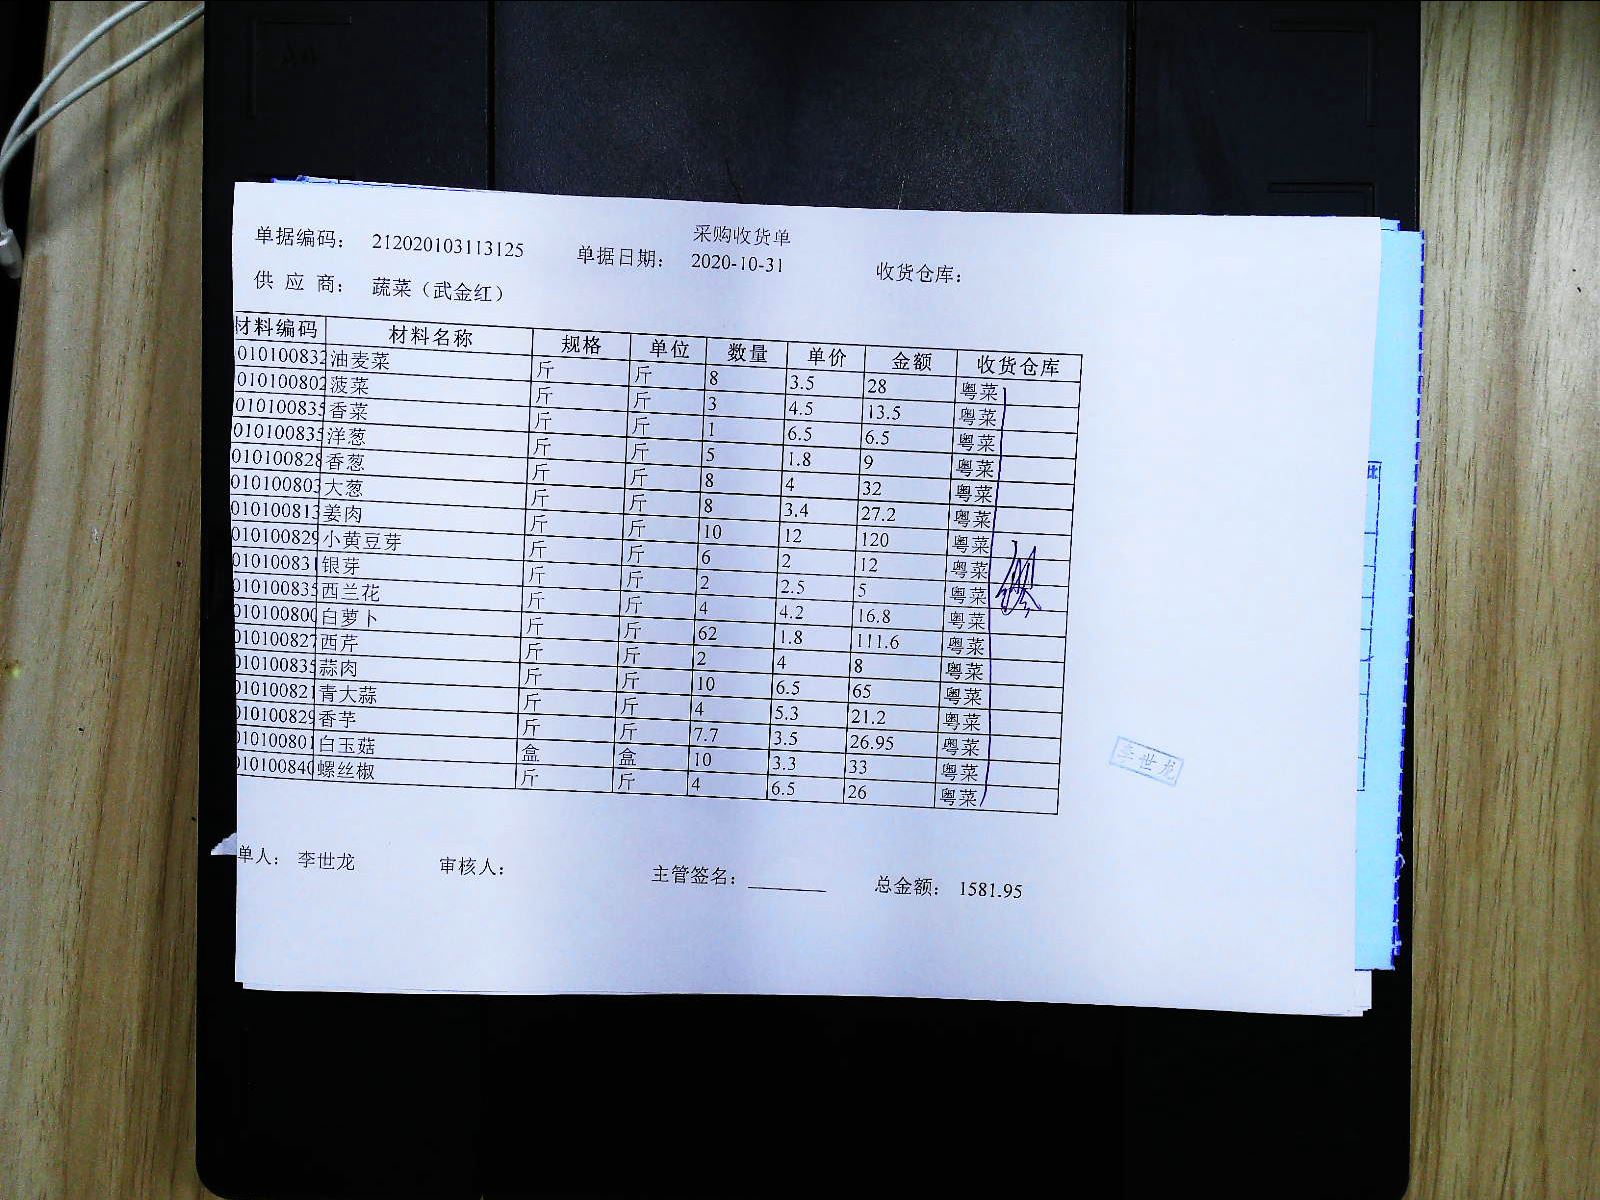 采购收货单
单据编码： 212020103113125 单据日期： 2020-10-31 收货仓库：
供 应 商： 蔬菜（武金红）
材料编码 材料名称 规格 单位 数量 单价 金额 收货仓库
010100832 油麦菜 斤 斤 8 3.5 28 粤菜
010100802 菠菜 斤 斤 3 4.5 13.5 粤菜
010100835 香菜 斤 斤 1 6.5 6.5 粤菜
010100835 洋葱 斤 斤 5 1.8 9 粤菜
010100828 香葱 斤 斤 8 4 32 粤菜
010100803 大葱 斤 斤 8 3.4 27.2 粤菜
010100813 姜肉 斤 斤 10 12 120 粤菜
010100829 小黄豆芽 斤 斤 6 2 12 粤菜
010100831 银芽 斤 斤 2 2.5 5 粤菜
010100835 西兰花 斤 斤 4 4.2 16.8 粤菜
010100800 白萝卜 斤 斤 62 1.8 111.6 粤菜
010100827 西芹 斤 斤 2 4 8 粤菜
010100835 蒜肉 斤 斤 10 6.5 65 粤菜
010100821 青大蒜 斤 斤 4 5.3 21.2 粤菜
010100829 香芋 斤 斤 7.7 3.5 26.95 粤菜
010100801 白玉菇 盒 盒 10 3.3 33 粤菜
010100840 螺丝椒 斤 斤 4 6.5 26 粤菜
李世龙
单人： 李世龙 审核人： 主管签名： 总金额： 1581.95